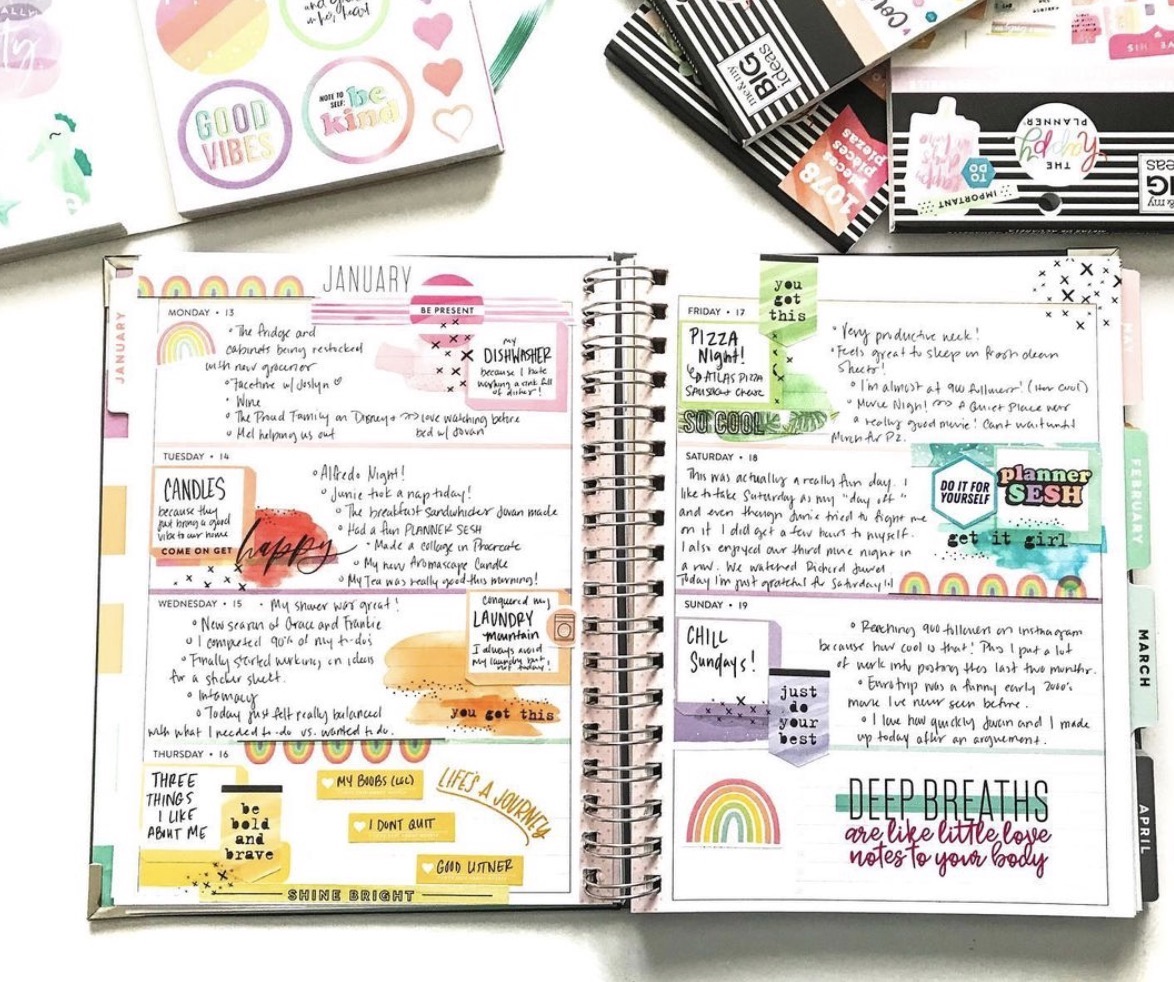 GOOD
VIBES
NOTE TO
SELF:
be
kind
me & my
BIG
ideas
1078
pieces
pièces
piezas
TO
DO
IMPORTANT
THE
Happy
PLANNER
JANUARY
JANUARY
BE PRESENT
MONDAY • 13
• The fridge and
cabinets being restocked
with new groceries
• Facetime w/ Joslyn ♡
• Wine
• The Proud Family on Disney+ → love watching before
bed w/ Jovan
• Mel helping us out
my
DISHWASHER
because I hate
working a sink full
of dishes!
TUESDAY • 14
CANDLES
because they
just bring a good
vibe to our home
COME ON GET
happy
• Alfredo Night!
• Junie took a nap today!
• The breakfast sandwiches Jovan made
• Had a fun PLANNER SESH
• Made a collage on Procreate
• My new Aromascape Candle
• My Tea was really good this morning!
WEDNESDAY • 15
• My shower was great!
• New season of Grace and Frankie
• I completed 90% of my to-dos
• Finally started working on ideas
for a sticker sheet.
• Intamacy
• Today just felt really balanced
with what I needed to-do vs. wanted to do.
Conquered my
LAUNDRY
mountain
I always avoid
my laundry but
not today!
you got this
THURSDAY • 16
THREE
THINGS
I LIKE
ABOUT ME
be
bold
and
brave
MY BOOBS (LOL)
I DONT QUIT
GOOD LISTNER
LIFE'S A JOURNEY
SHINE BRIGHT
FRIDAY • 17
you
got
this
PIZZA
Night!
ATLAS PIZZA
SAUSAGE & CHEESE
SO COOL
• Very productive week!
• Feels great to sleep in fresh clean
sheets!
• I'm almost at 900 followers! (How Cool)
• Movie Night → A Quiet Place was
a really good movie! Cant wait until
March for P2.
SATURDAY • 18
This was actually a really fun day. I
like to take Saturday as my "day off"
and even though Junie tried to fight me
on it I did get a few hours to myself.
I also enjoyed our third movie night in
a row. We watched Richard Jewel
Today I'm just grateful for Saturday!
DO IT FOR
YOURSELF
planner
SESH
get it girl
SUNDAY • 19
CHILL
Sundays!
just
do
your
best
• Reaching 900 followers on instagram
because how cool is that! Plus I put a lot
of work into posting this last two months.
• Eurotrip was a funny early 2000's
movie I've never seen before.
• I love how quickly Jovan and I made
up today after an arguement.
DEEP BREATHS
are like little love
notes to your body
MAY
FEBRUARY
MARCH
APRIL